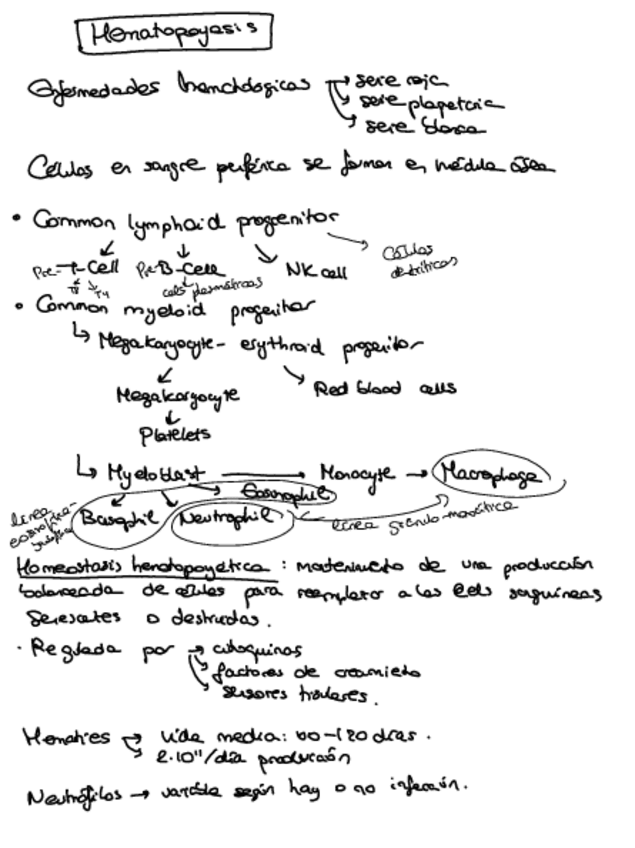 Hematopoyesis
Enfermedades hematológicas → serie roja
→ serie plaquetaria
→ serie blanca
Células en sangre periférica se forman en médula ósea
• Common lymphoid progenitor
Pre-T-Cell Pre-B-Cell NK cell Células dendríticas
T8 T4 cels plasmáticas
• Common myeloid progenitor
↳ Megakaryocyte - erythroid progenitor
Megakaryocyte Red blood cells
Platelets
↳ Myeloblast → Monocyte → Macrophage
Eosinophil
Basophil Neutrophil línea granulo-monocítica
línea eosinofílica-
Homeostasis hematopoyética: mantenimiento de una producción
balanceada de células para reemplazar a las cels sanguíneas
senescentes o destruidas.
· Regulada por → citoquinas
→ factores de crecimiento
→ sensores tisulares.
Hematíes → vida media: 100-120 días.
→ 2·10¹¹/día producción
Neutrófilos → variable según hay o no infección.